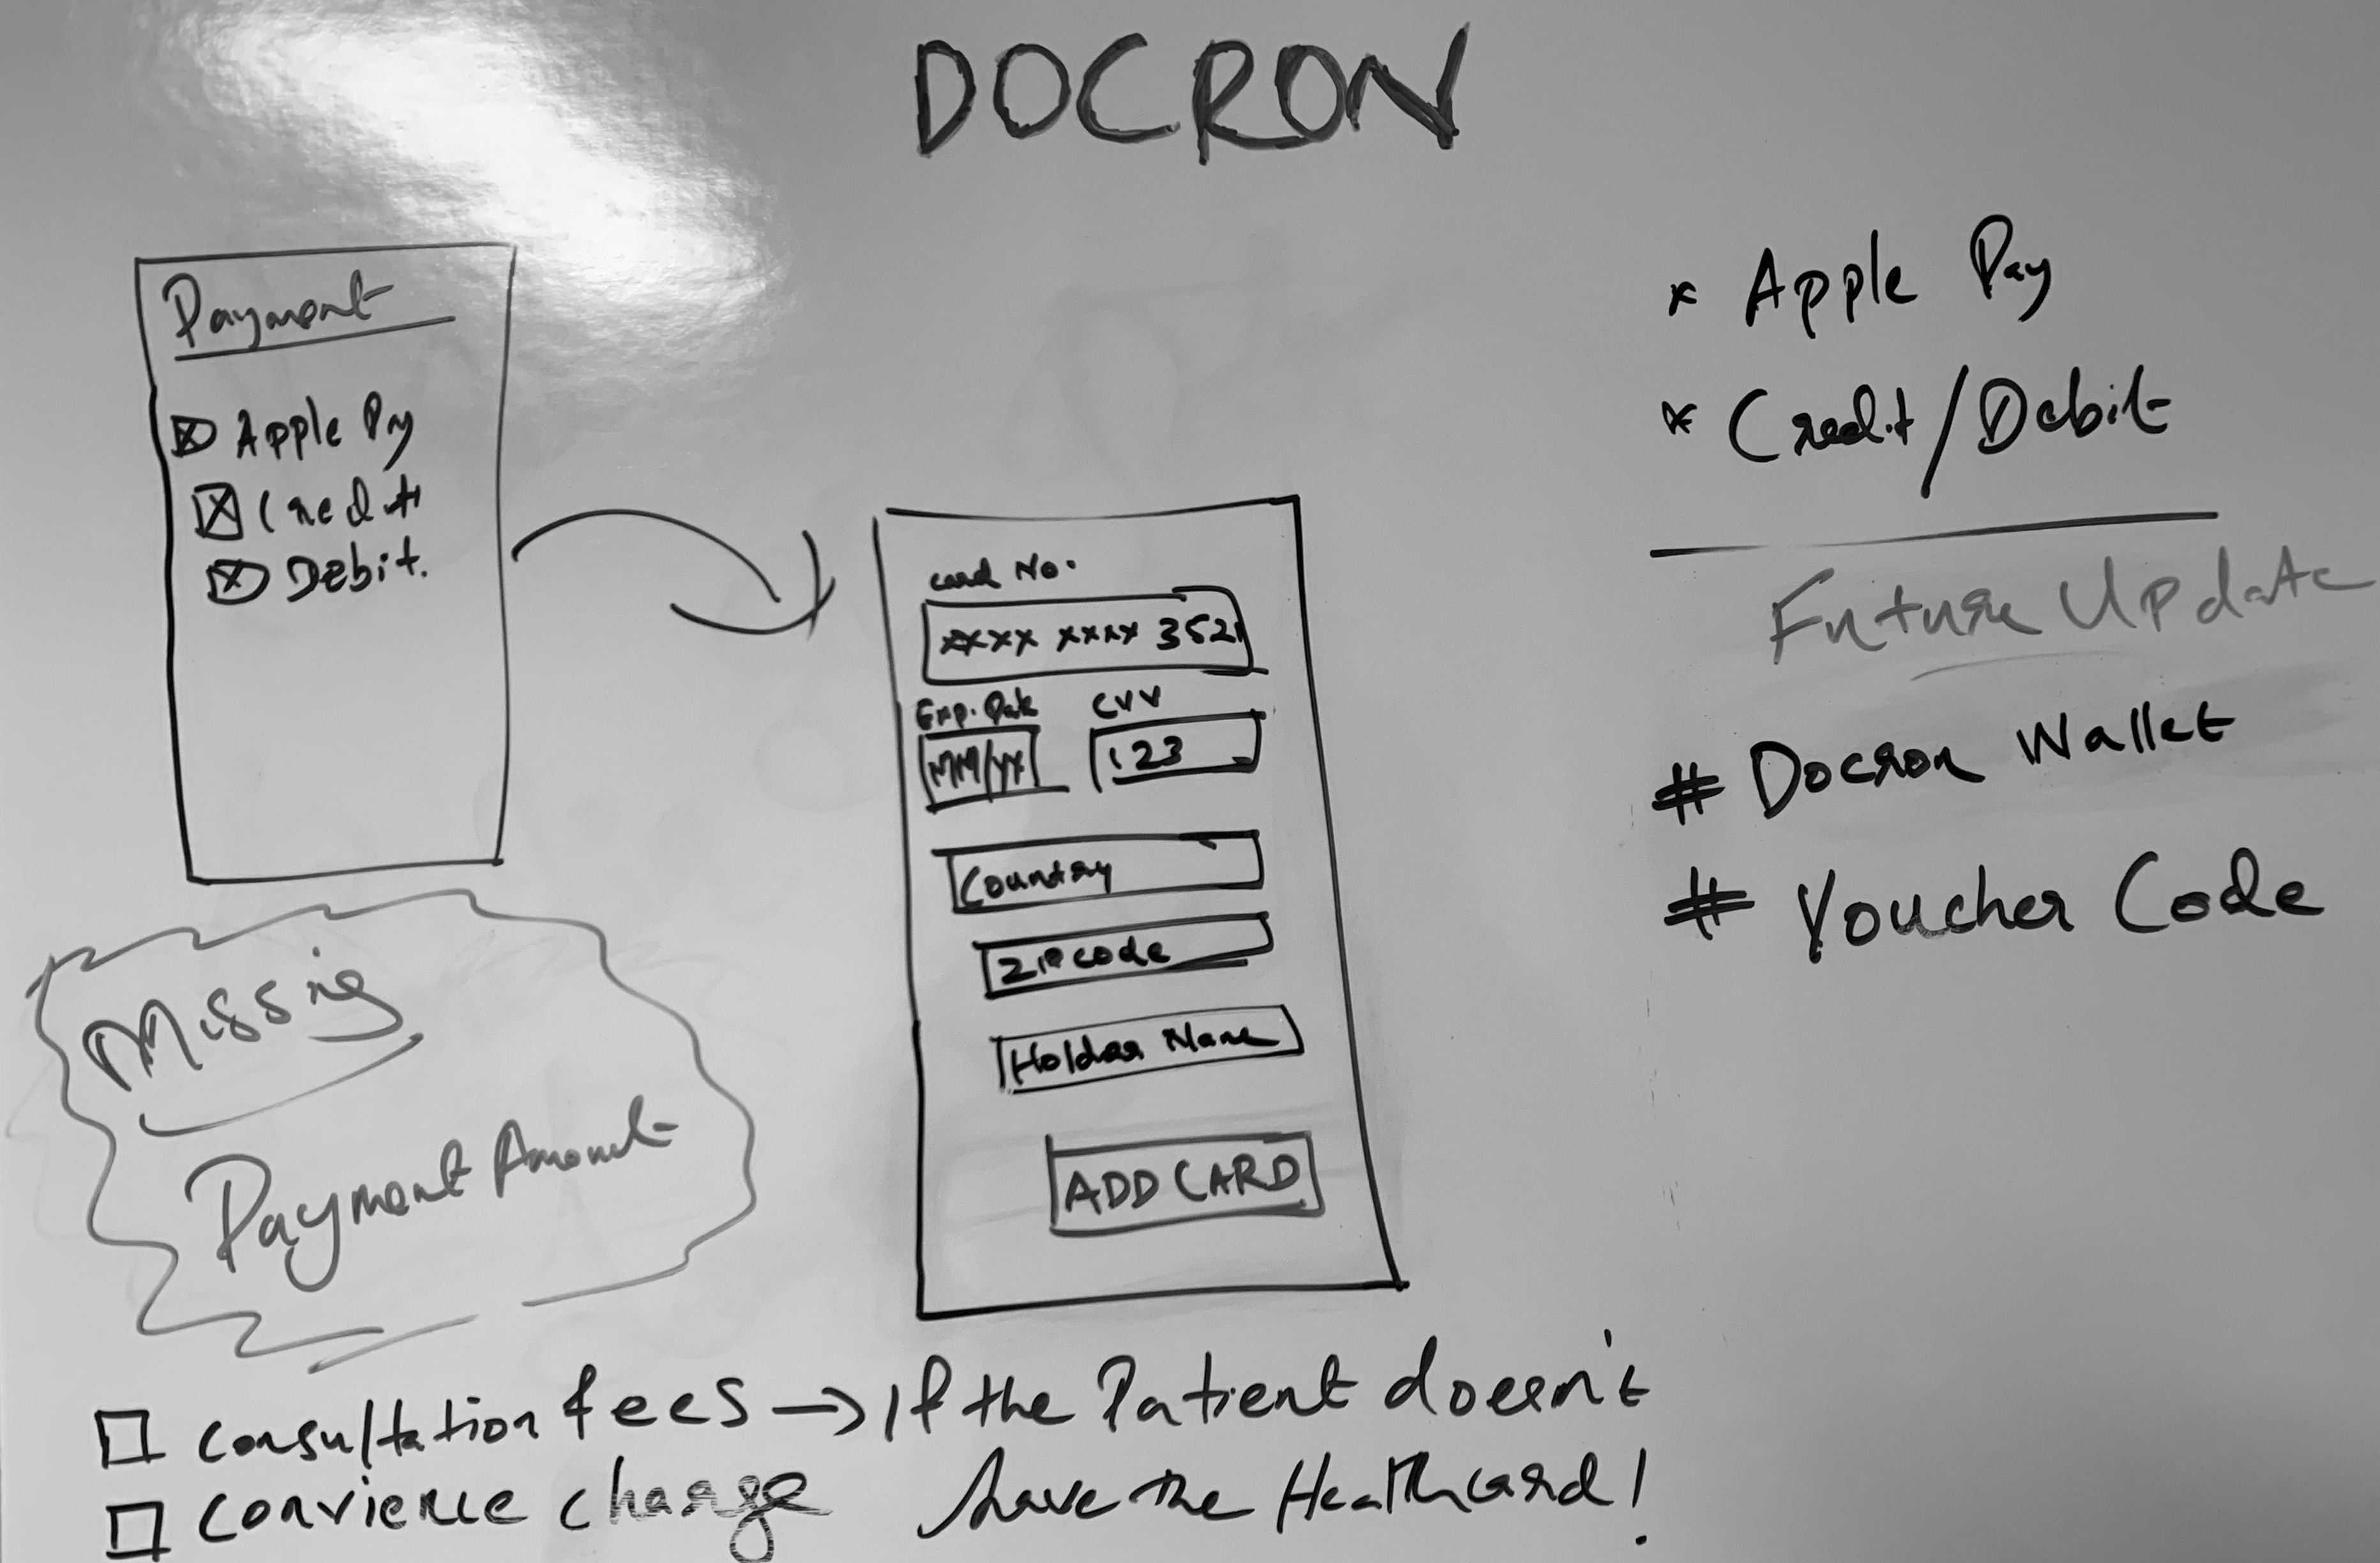 DOCRON
Payment
Apple Pay
Credit
Debit.
Card No.
xxxx xxxx 352
Exp. Date
CVV
MM/YY
123
Country
ZIP code
Holder Name
ADD CARD
* Apple Pay
* Credit/Debit
Future Update
# Docron Wallet
# Voucher Code
Missing
Payment Amount
consultation fees → If the Patient doesn't
have the Healthcard!
convience charge